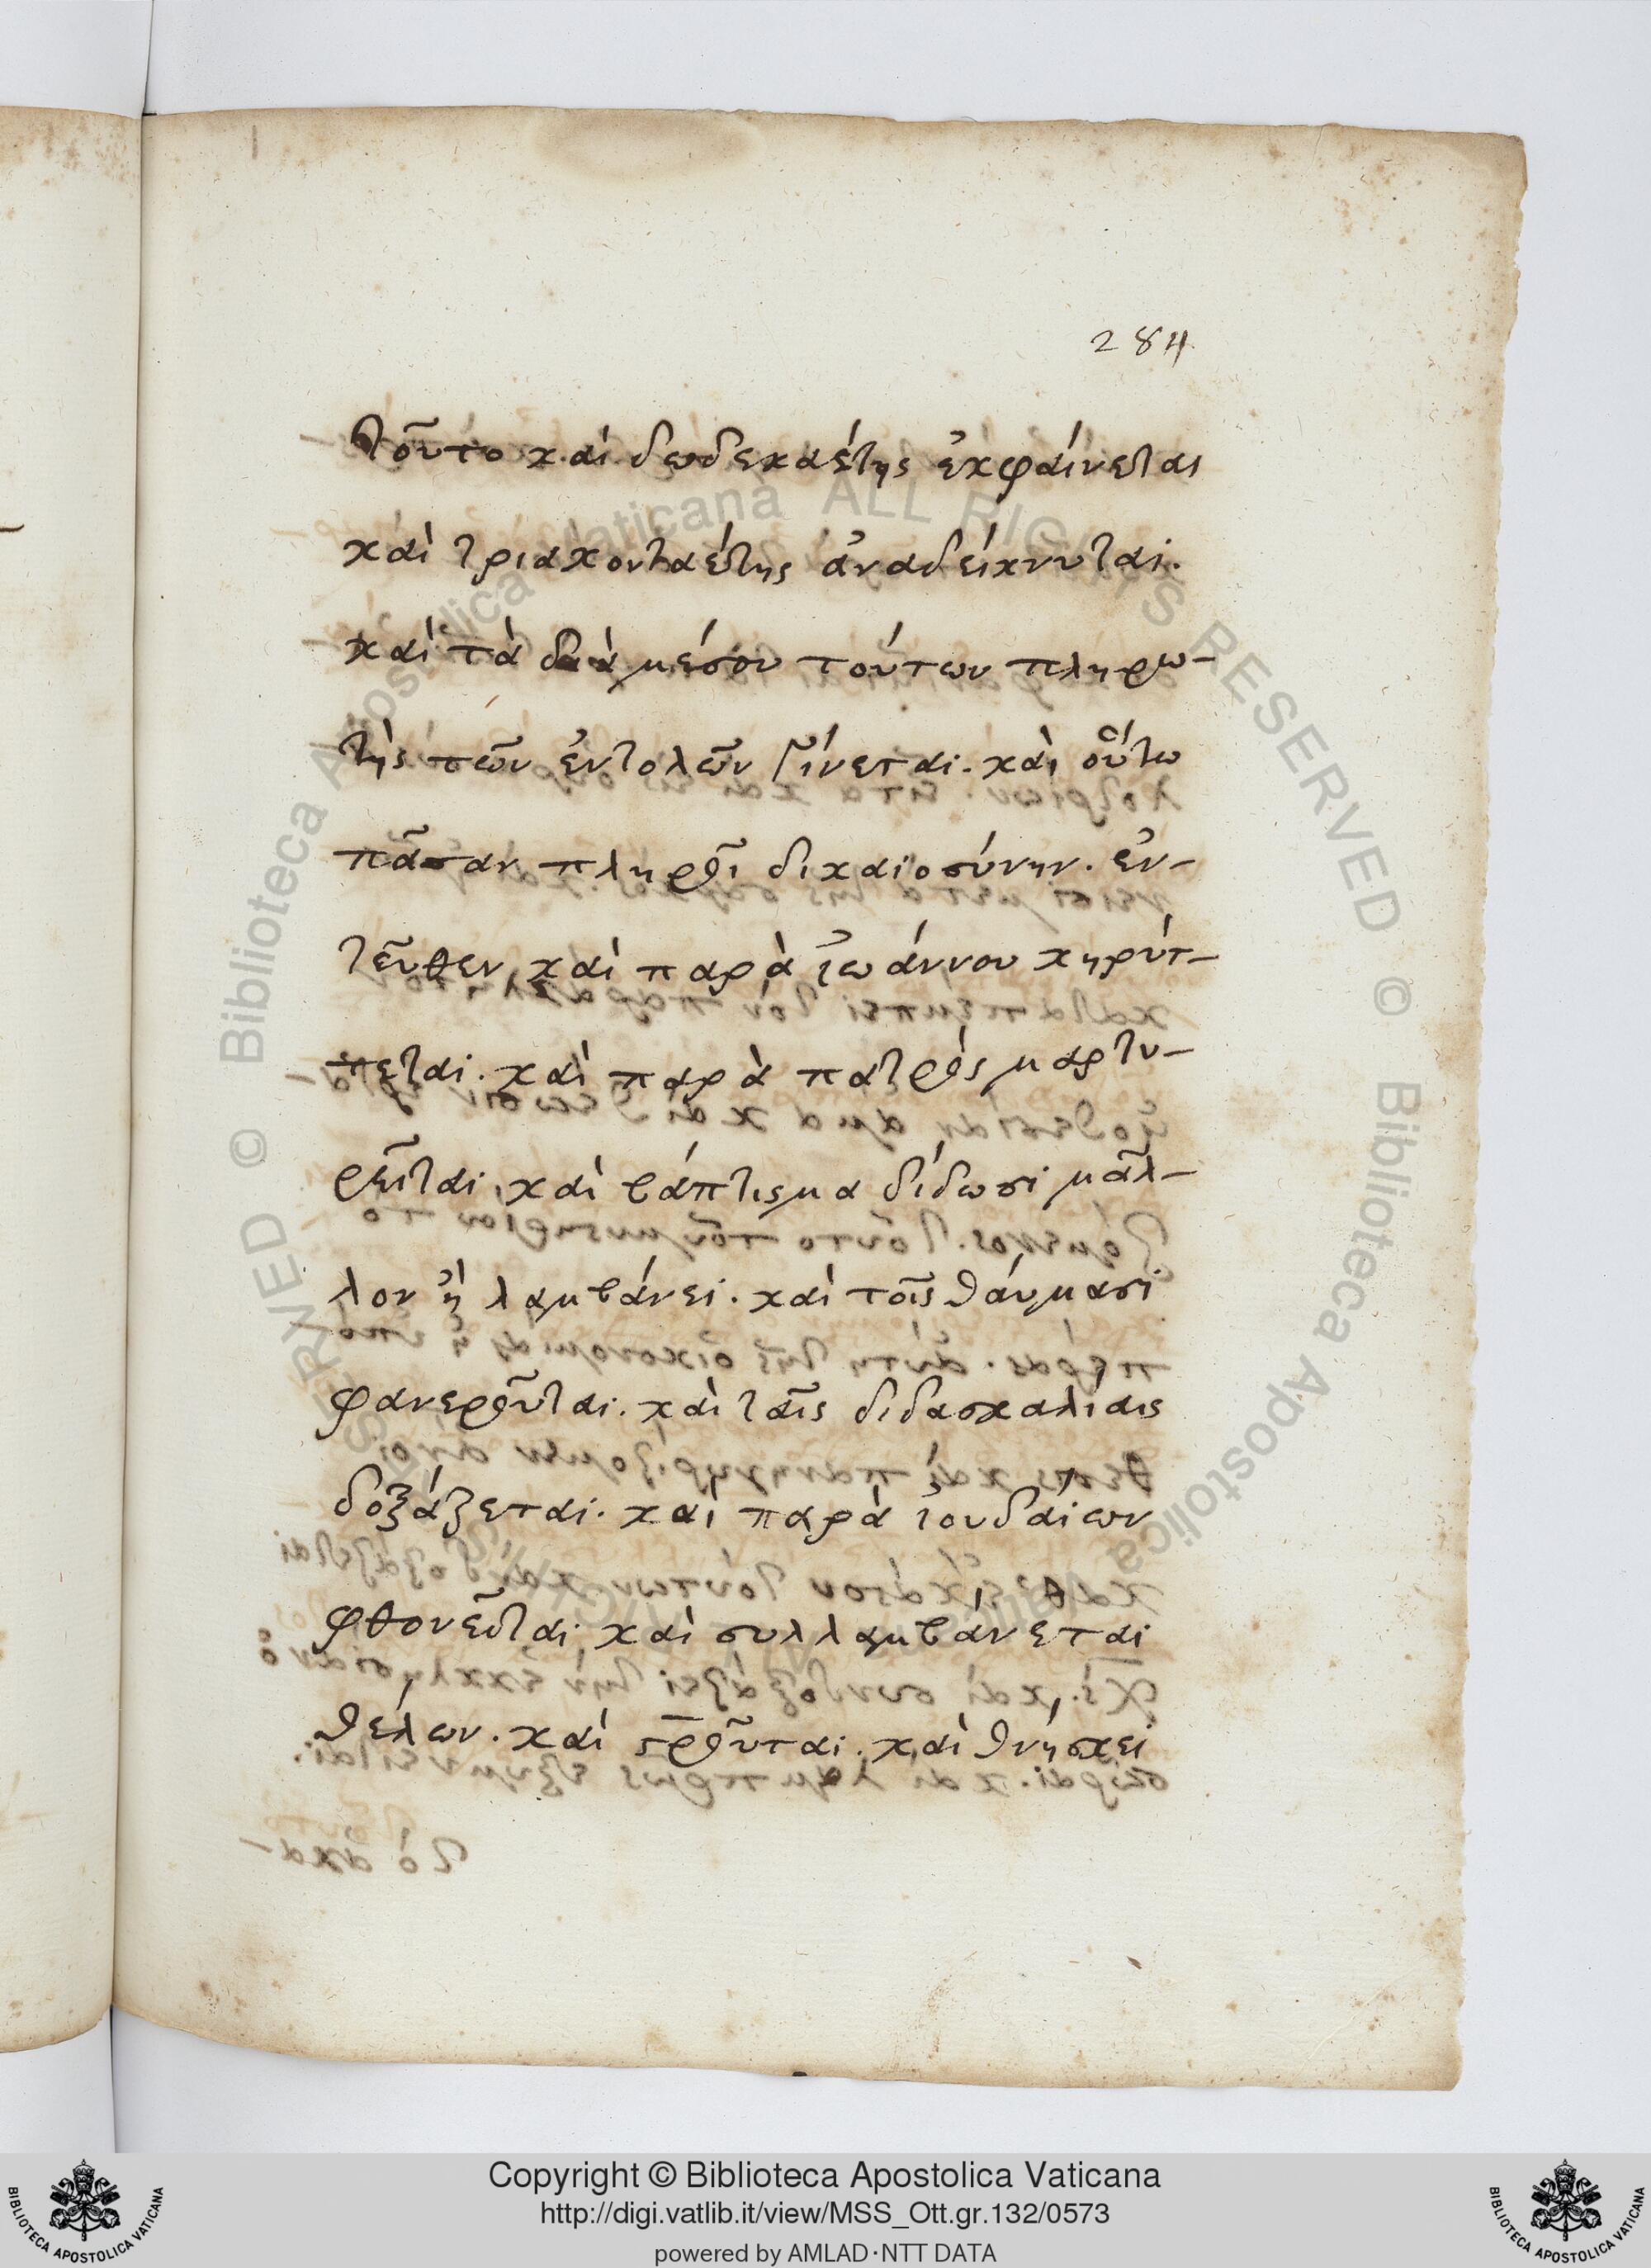 284
τοῦτο καὶ δωδεκαέτης ἐκφαίνεται
καὶ τριακονταέτης ἀναδείκνυται.
καὶ τὰ διὰ μέσου τούτων πληρω-
τὴς τῶν ἐντολῶν γίνεται. καὶ οὕτω
πᾶσαν πληροῖ δικαιοσύνην. ἐν-
τεῦθεν καὶ παρὰ ἰωάννου κηρύτ-
τεται. καὶ παρὰ πατρὸς μαρτυ-
ρεῖται, καὶ βάπτισμα δίδωσι μᾶλ-
λον ἢ λαμβάνει. καὶ τοῖς θαύμασι
φανεροῦται. καὶ ταῖς διδασκαλίαις
δοξάζεται. καὶ παρὰ ἰουδαίων
φθονεῖται καὶ συλλαμβάνεται
θέλων. καὶ σ̅ρ̅οῦται. καὶ θνήσκει
Copyright © Biblioteca Apostolica Vaticana
http://digi.vatlib.it/view/MSS_Ott.gr.132/0573
powered by AMLAD·NTT DATA
BIBLIOTECA APOSTOLICA VATICANA
BIBLIOTECA APOSTOLICA VATICANA